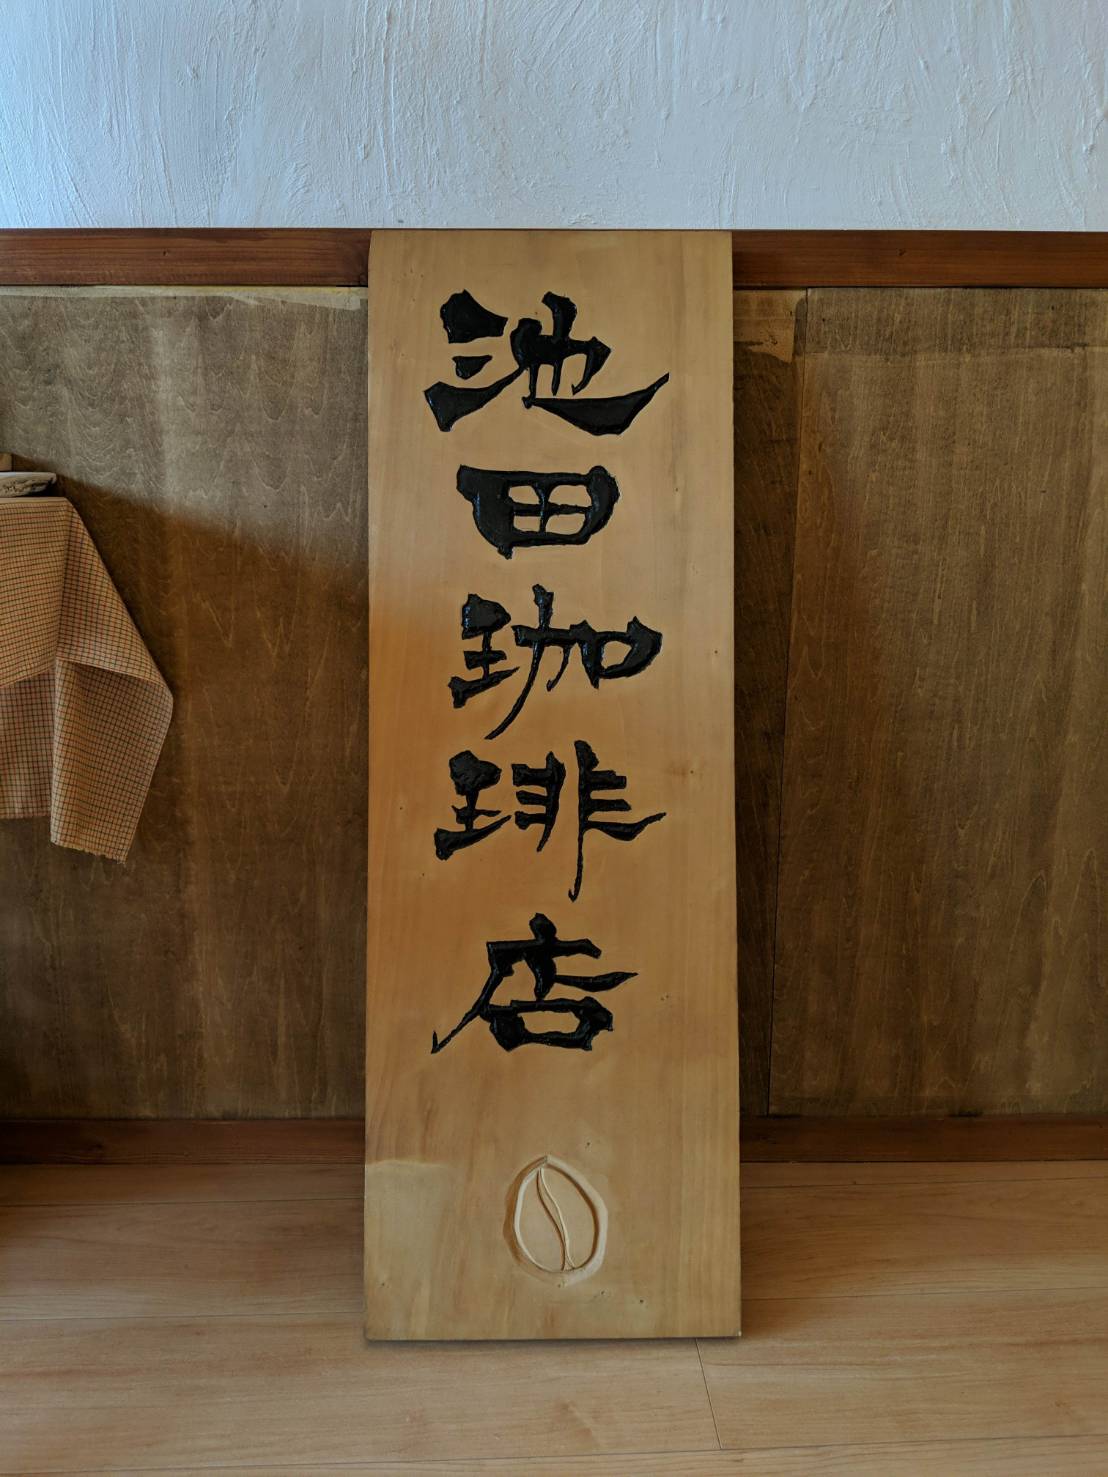 池田珈琲店